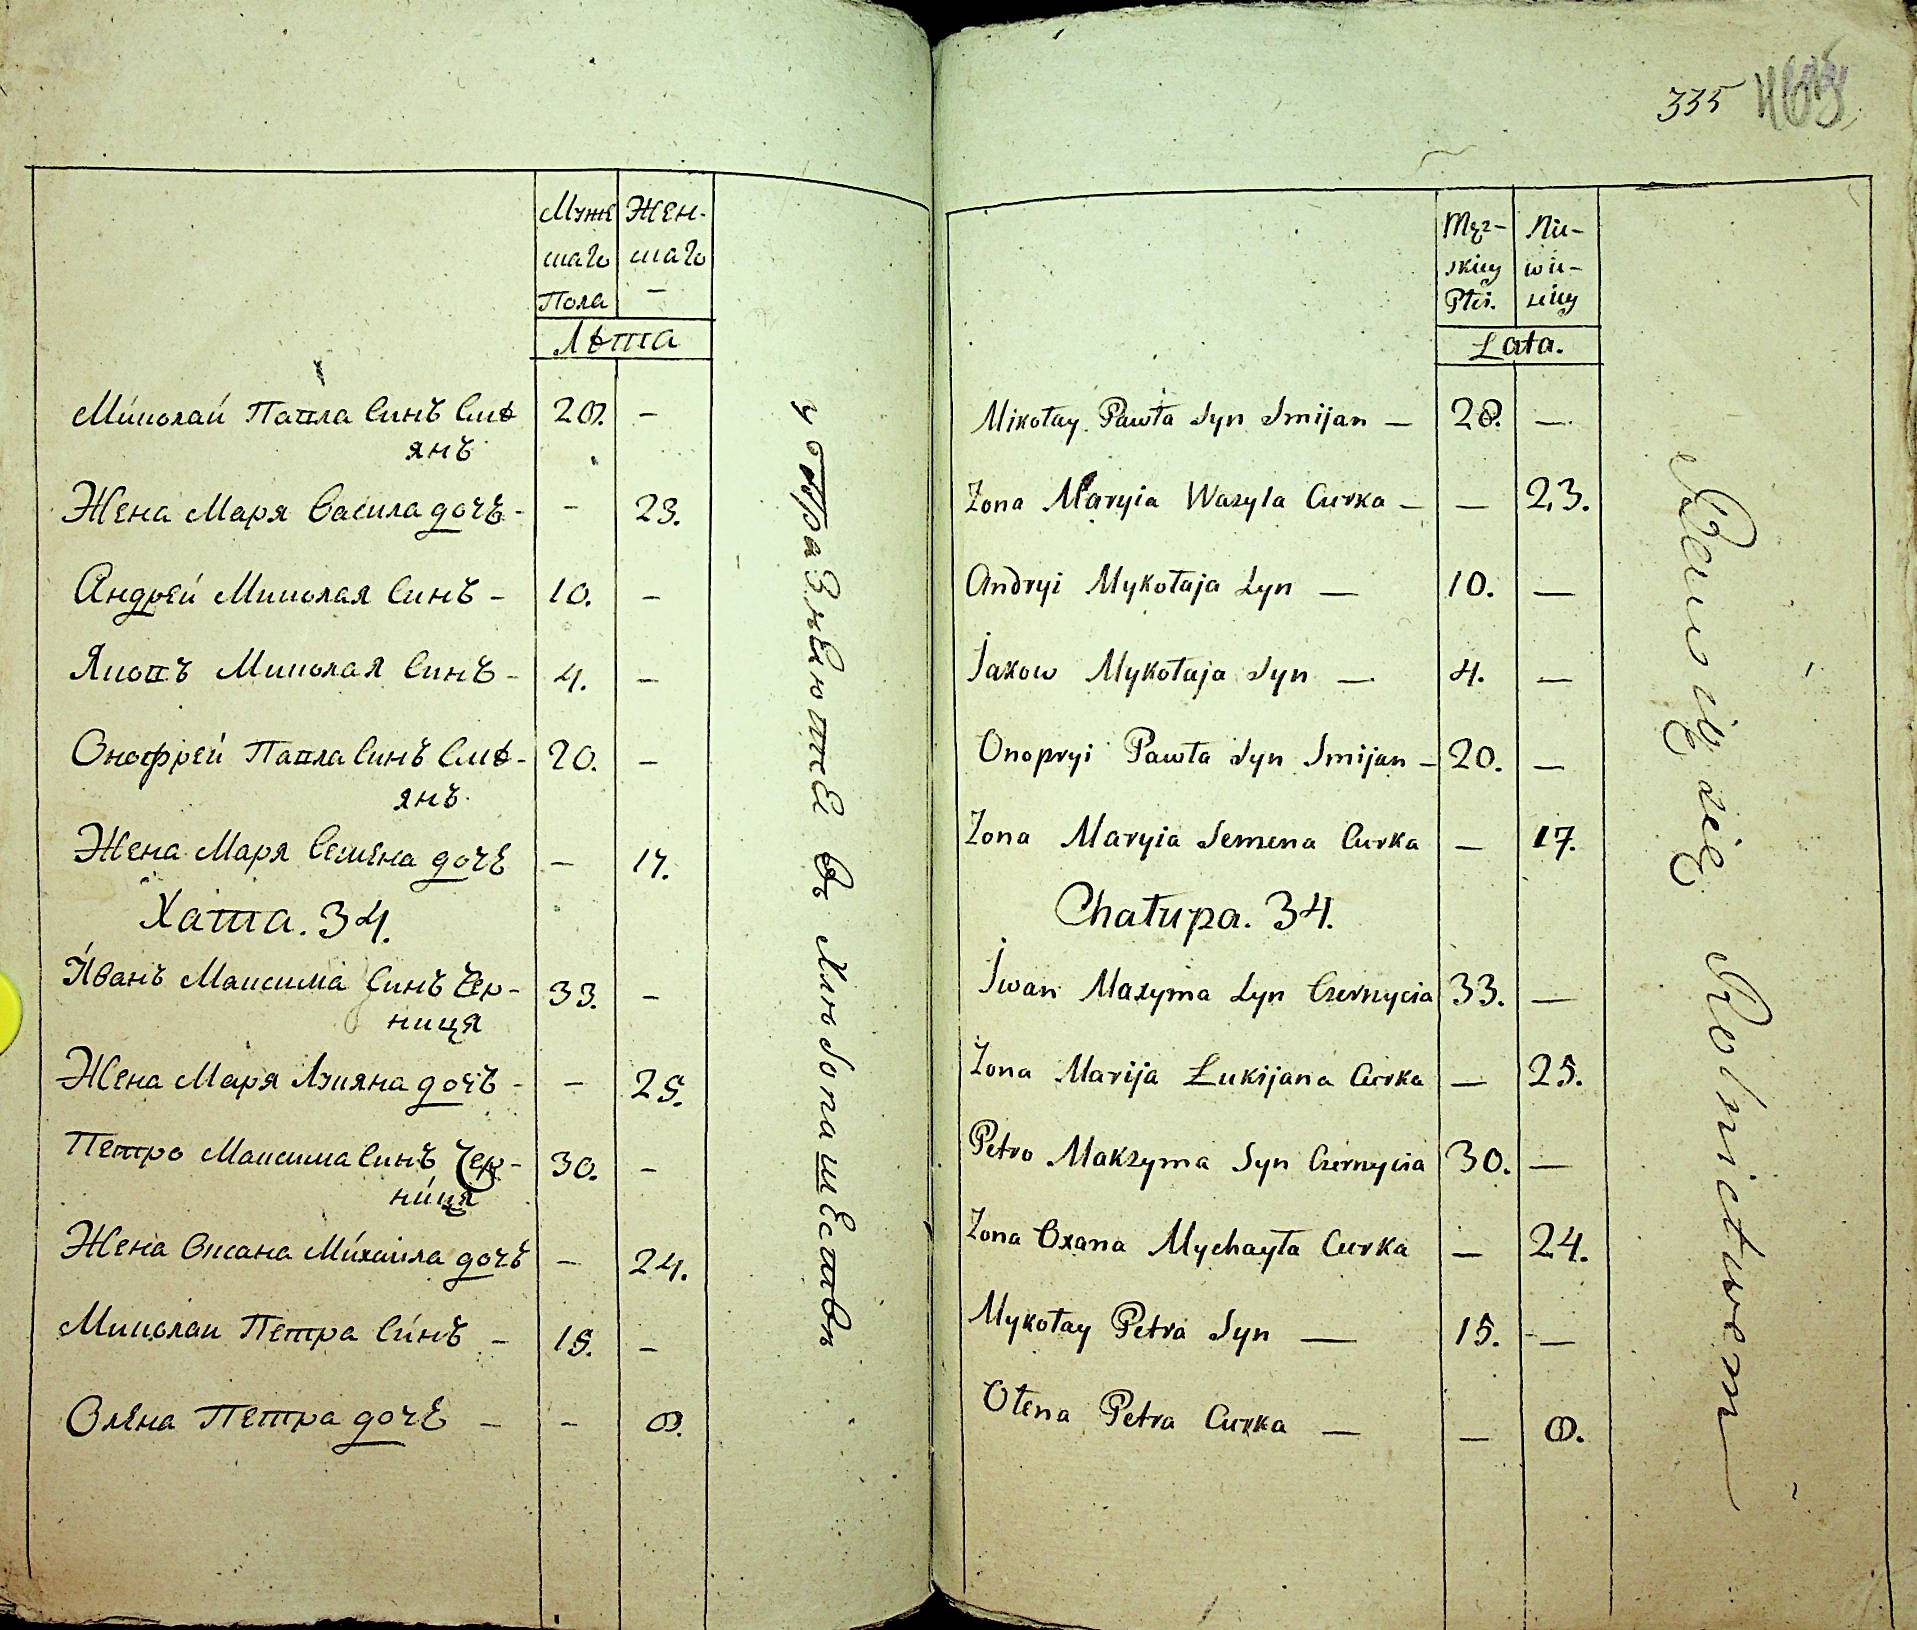 335
Муже Жен-
скаго скаго
Пола —
Лѣта
Миколай Павла Синъ Смѣ 28. —
янъ
Жена Маря Васила дочъ - — 23.
Андрей Миколая Синъ - 10. —
Яковъ Миколая Синъ - 4. —
Онофрей Павла Синъ Смѣ- 20. —
янъ.
Жена Маря Семена дочъ — 17.
Хата. 34.
Иванъ Максима Синъ Чер- 33. —
ниця
Жена Маря Лукяна дочъ - — 25.
Петро Максима Синъ Чер- 30. —
ниця
Жена Оксана Михаила дочъ — 24.
Миколаи Петра Синъ - 15. —
Олена Петра дочъ - — 8.
упражнеютсе въ хлѣбопашествѣ
Męz- Nie-
skiey wie-
Płci. sciey
Lata.
Mikołay Pawła Syn Smijan — 28. —
Zona Maryia Wasyla Curka — — 23.
Andryi Mykołaja Syn — 10. —
Jakow Mykołaja Syn — 4. —
Onopryi Pawła Syn Smijan — 20. —
Zona Maryia Semena Curka — 17.
Chałupa. 34.
Iwan Maxyma Syn Czernycia 33. —
Zona Marija Łukijana Curka — 25.
Petro Maksyma Syn Czernycia 30. —
Zona Oxana Mychayła Curka — 24.
Mykołay Petra Syn — 15. —
Ołena Petra Curka — — 8.
Bawią się Rolnictwem